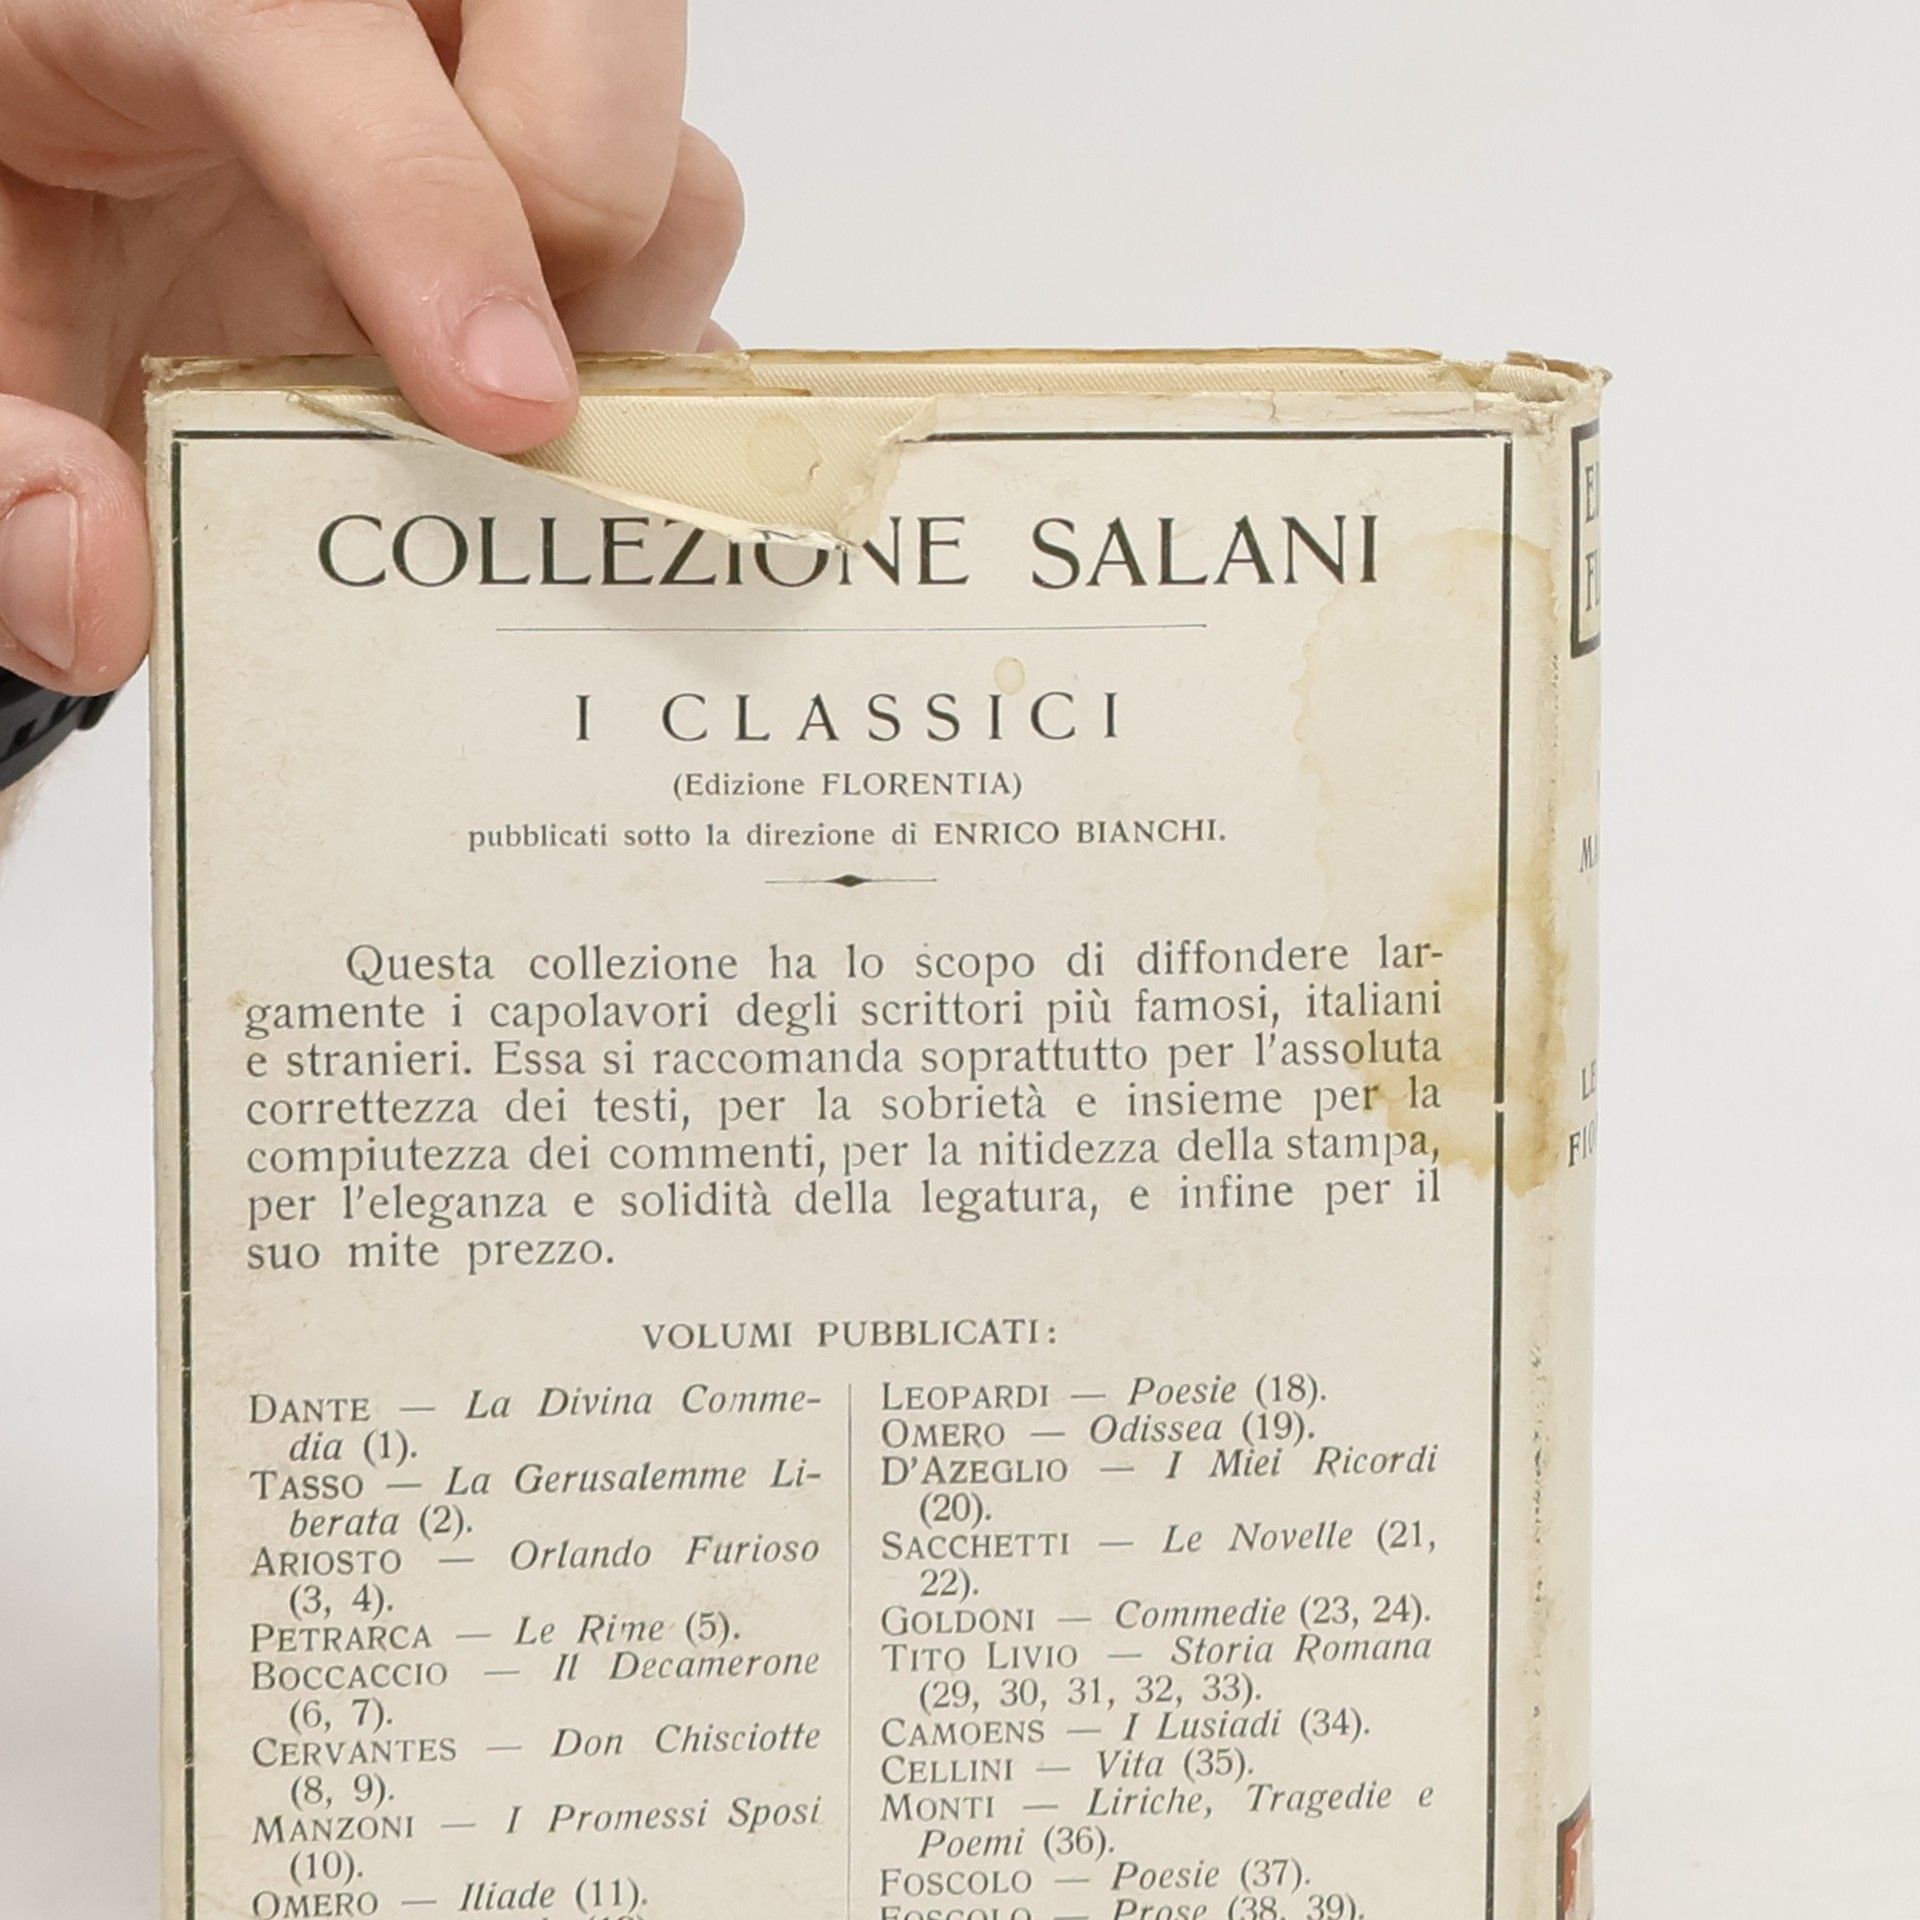 COLLEZIONE SALANI
I CLASSICI
(Edizione FLORENTIA)
pubblicati sotto la direzione di ENRICO BIANCHI.
Questa collezione ha lo scopo di diffondere lar-
gamente i capolavori degli scrittori più famosi, italiani
e stranieri. Essa si raccomanda soprattutto per l'assoluta
correttezza dei testi, per la sobrietà e insieme per la
compiutezza dei commenti, per la nitidezza della stampa,
per l'eleganza e solidità della legatura, e infine per il
suo mite prezzo.
VOLUMI PUBBLICATI:
DANTE — La Divina Comme-
dia (1).
TASSO — La Gerusalemme Li-
berata (2).
ARIOSTO — Orlando Furioso
(3, 4).
PETRARCA — Le Rime (5).
BOCCACCIO — Il Decamerone
(6, 7).
CERVANTES — Don Chisciotte
(8, 9).
MANZONI — I Promessi Sposi
(10).
OMERO — Iliade (11).
LEOPARDI — Poesie (18).
OMERO — Odissea (19).
D'AZEGLIO — I Miei Ricordi
(20).
SACCHETTI — Le Novelle (21,
22).
GOLDONI — Commedie (23, 24).
TITO LIVIO — Storia Romana
(29, 30, 31, 32, 33).
CAMOENS — I Lusiadi (34).
CELLINI — Vita (35).
MONTI — Liriche, Tragedie e
Poemi (36).
FOSCOLO — Poesie (37).
FOSCOLO — Prose (38, 39).